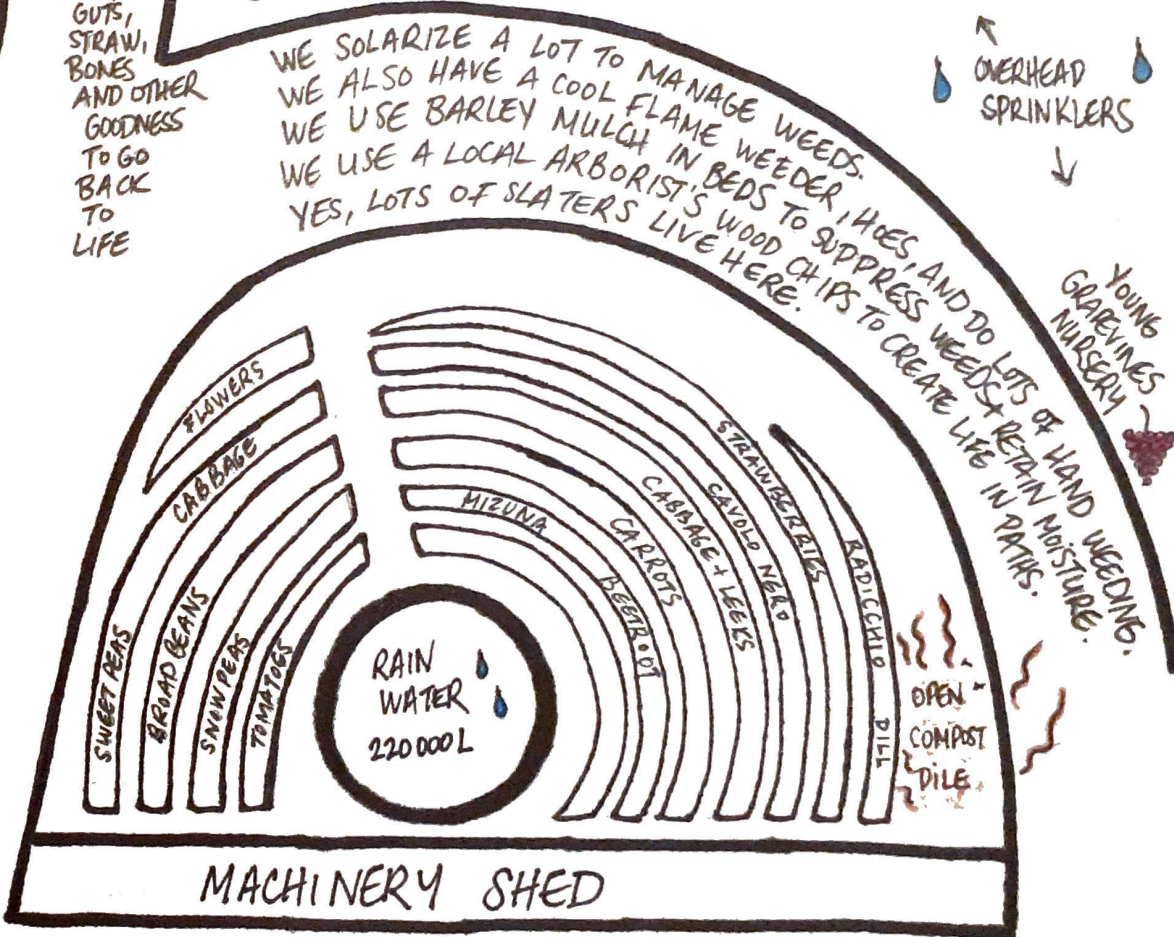 GUTS,
STRAW,
BONES
AND OTHER
GOODNESS
TO GO
BACK
TO
LIFE
WE SOLARIZE A LOT TO MANAGE WEEDS.
WE ALSO HAVE A COOL FLAME WEEDER, HOES, AND DO LOTS OF HAND WEEDING.
WE USE BARLEY MULCH IN BEDS TO SUPPRESS WEEDS + RETAIN MOISTURE.
WE USE A LOCAL ARBORIST'S WOOD CHIPS TO CREATE LIFE IN PATHS.
YES, LOTS OF SLATERS LIVE HERE.
OVERHEAD
SPRINKLERS
YOUNG
GRAPEVINES
NURSERY
FLOWERS
CABBAGE
SWEET PEAS
BROAD BEANS
SNOWPEAS
TOMATOES
MIZUNA
BEETROOT
CARROTS
CABBAGE + LEEKS
CAVOLO NERO
STRAWBERRIES
RADICCHIO
DILL
RAIN
WATER
220 000 L
OPEN
COMPOST
PILE
MACHINERY SHED